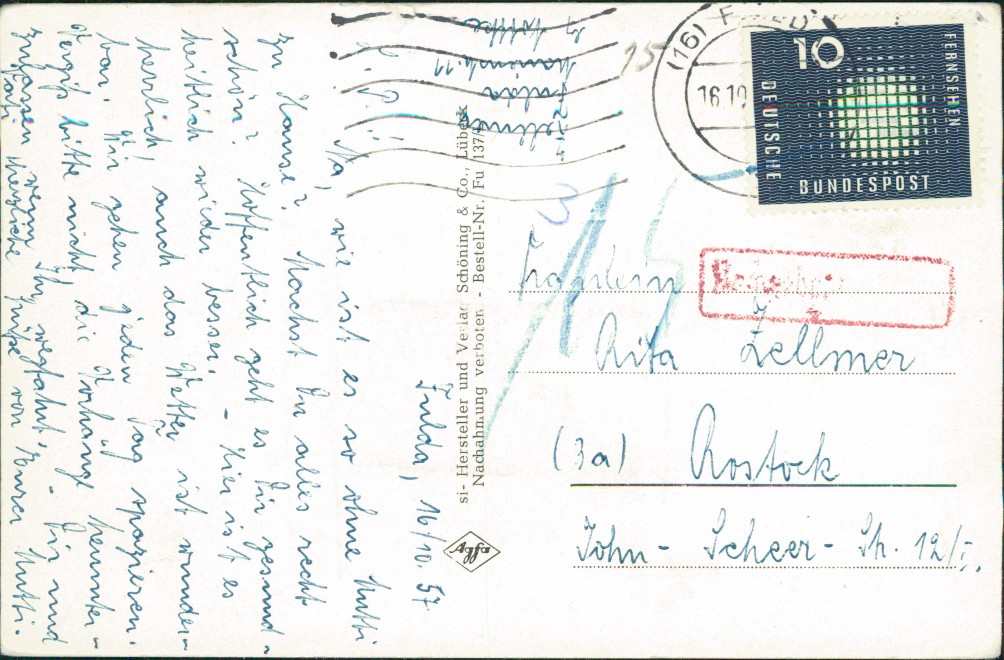 Fulda, 16/10. 57
Na, wie ist es so ohne Mutti
zu Hause? Machst Du alles recht
schön? Hoffentlich geht es Dir gesund-
heitlich wieder besser. - Hier ist es
herrlich, auch das Wetter ist wunder-
bar. Wir gehen jeden Tag spazieren.
Vergiß bitte nicht die Vorhänge herunter-
zulassen, wenn Ihr wegfahrt. - Dir und
Vati herzliche Grüße von Eurer Mutti.
Zellmer
Fulda
si- Hersteller und Verlag Schöning & Co., Lübeck
Nachahmung verboten - Bestell-Nr. Fu 137/
Agfa
15
(16)
16.10
10
FERNSEHEN
DEUTSCHE
BUNDESPOST
Nachgebühr
15
Fräulein
Rita Zellmer
(3a) Rostock
John-Scheer-Str. 12/I.